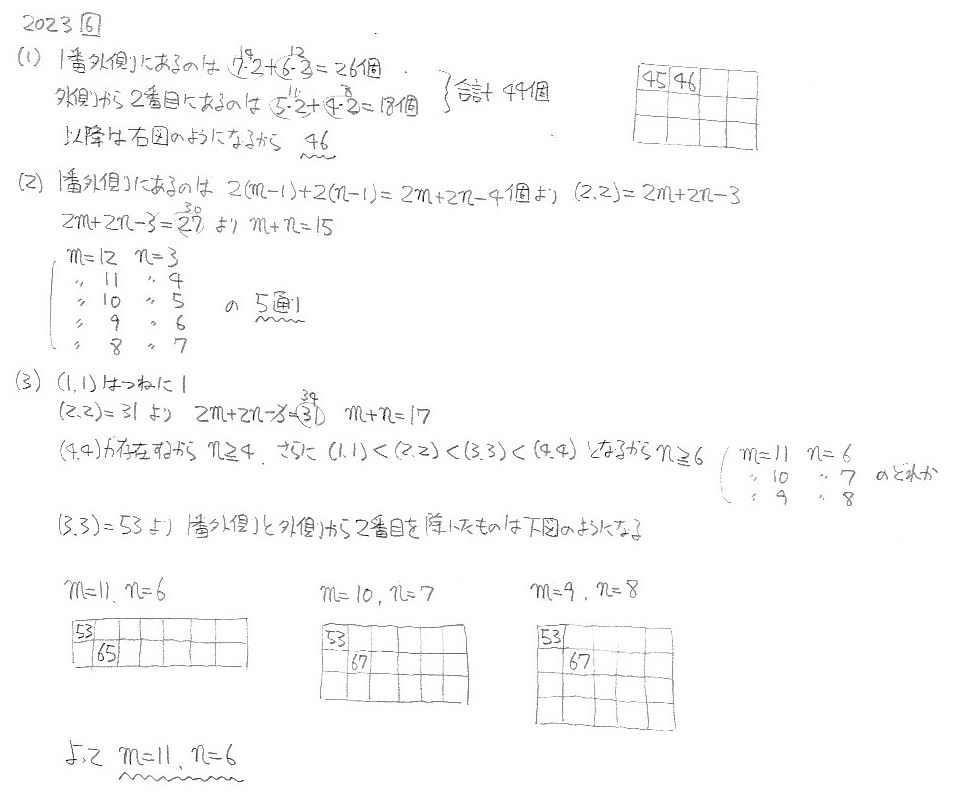 2023 6
(1) 1番外側にあるのは 7・2+6・2=26個
14 12
外側から2番目にあるのは 5・2+4・2=18個
10 8
合計 44個
以降は右図のようになるから 46
45 46
(2) 1番外側にあるのは 2(m-1)+2(n-1)=2m+2n-4個より (2,2)=2m+2n-3
2m+2n-3=27 より m+n=15
30
m=12 n=3
〃 11 〃 4
〃 10 〃 5
〃 9 〃 6
〃 8 〃 7
の 5通り
(3) (1,1)はつねに1
(2,2)=31より 2m+2n-3=31 m+n=17
34
(4,4)が存在するから n≧4. さらに (1,1)<(2,2)<(3,3)<(4,4) となるから n≧6
m=11 n=6
〃 10 〃 7
〃 9 〃 8
のどれか
(3,3)=53より 1番外側と外側から2番目を除いたものは下図のようになる
m=11, n=6
53
65
m=10, n=7
53
67
m=9, n=8
53
67
よって m=11, n=6